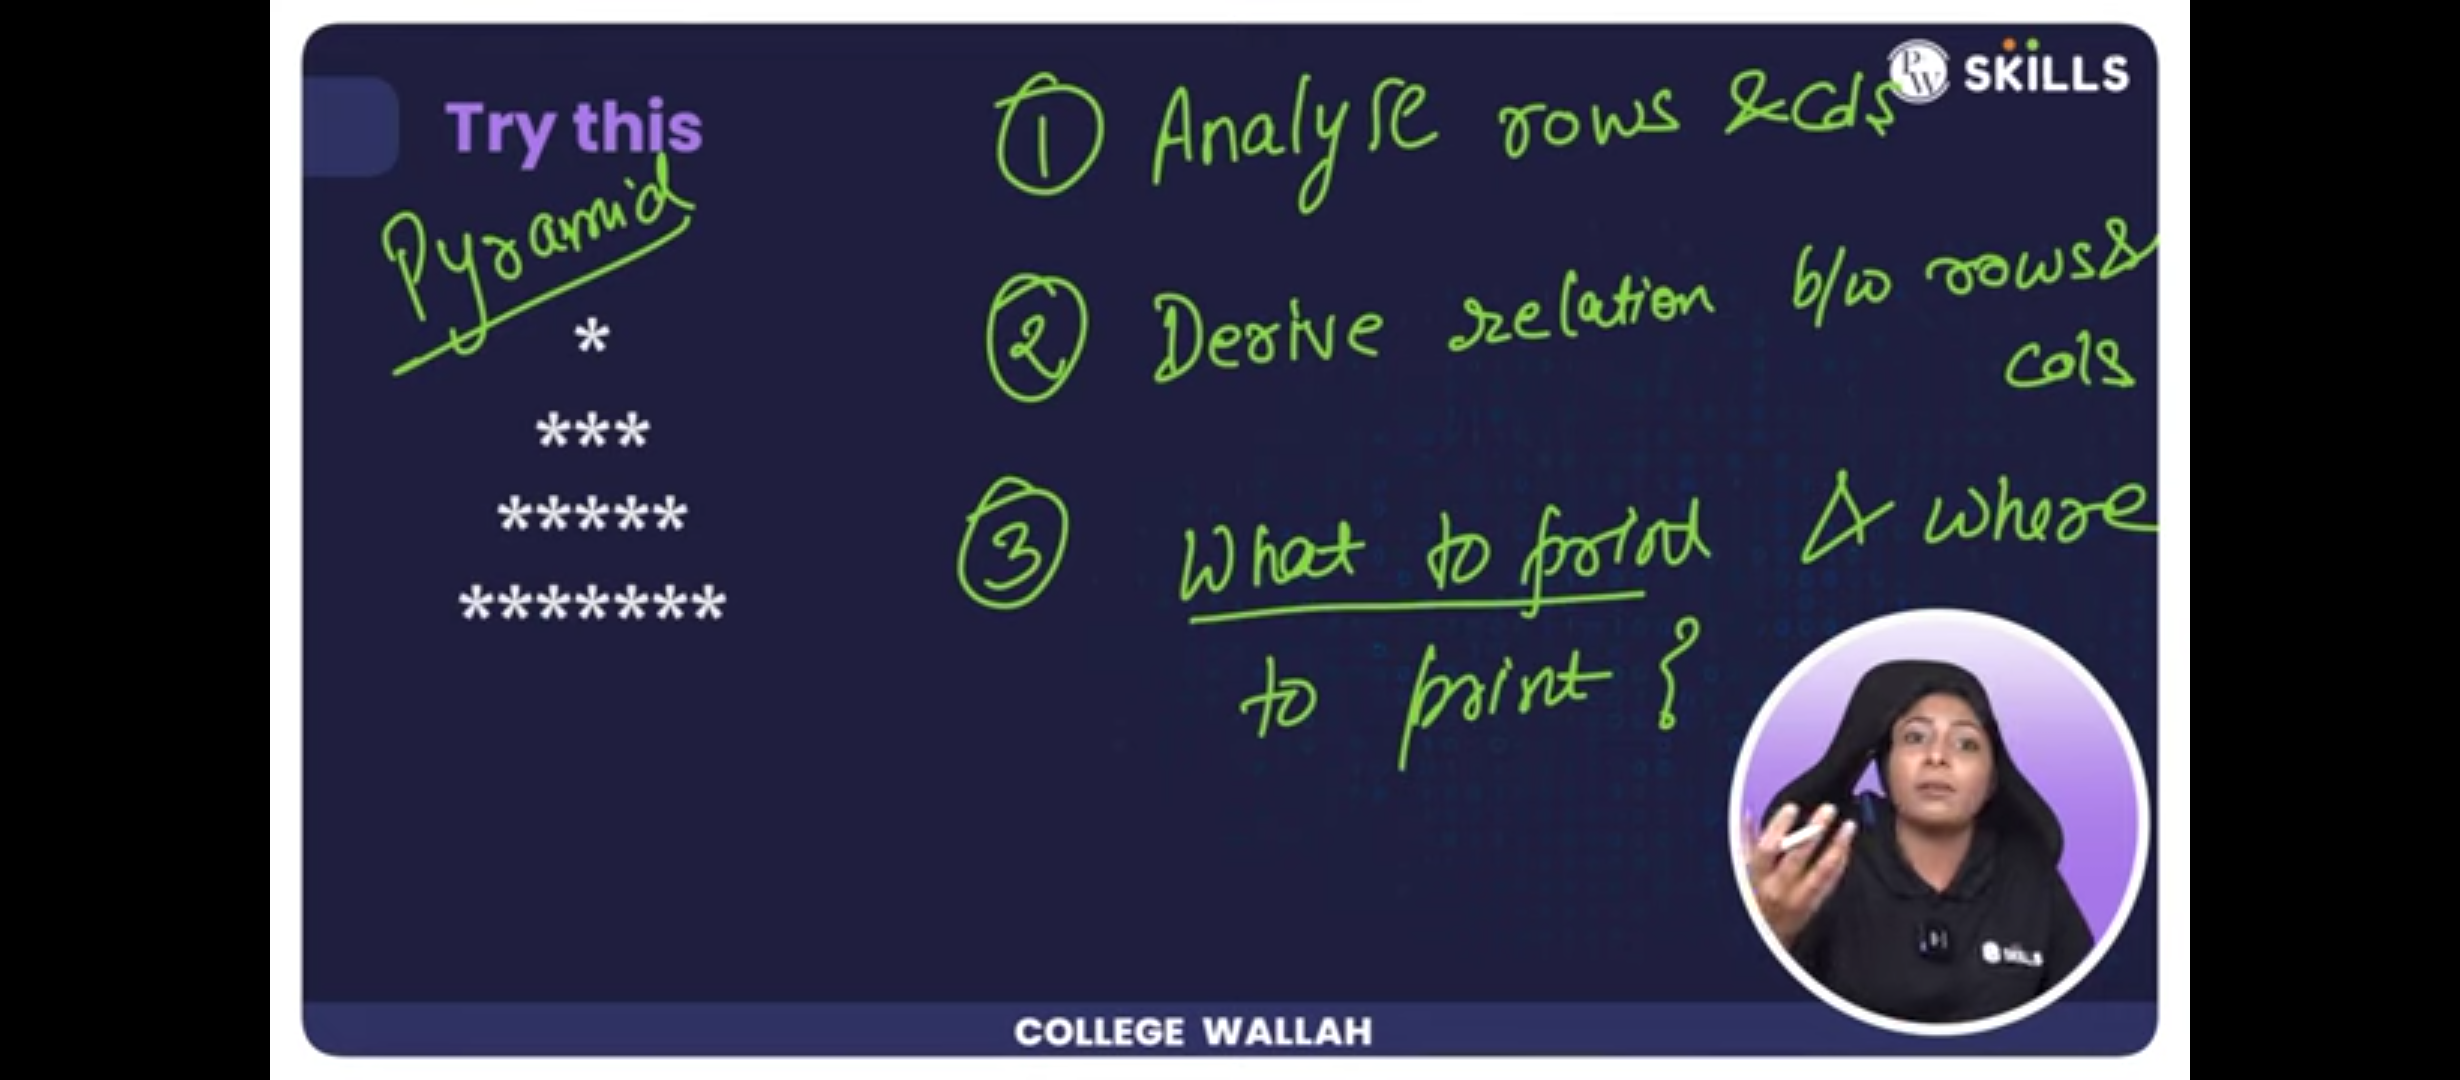 PW SKILLS
Try this
Pyramid
*
***
*****
*******
1 Analyse rows & Cols
2 Derive relation b/w rows &
cols
3 What to print & where
to print ?
SKILLS
COLLEGE WALLAH